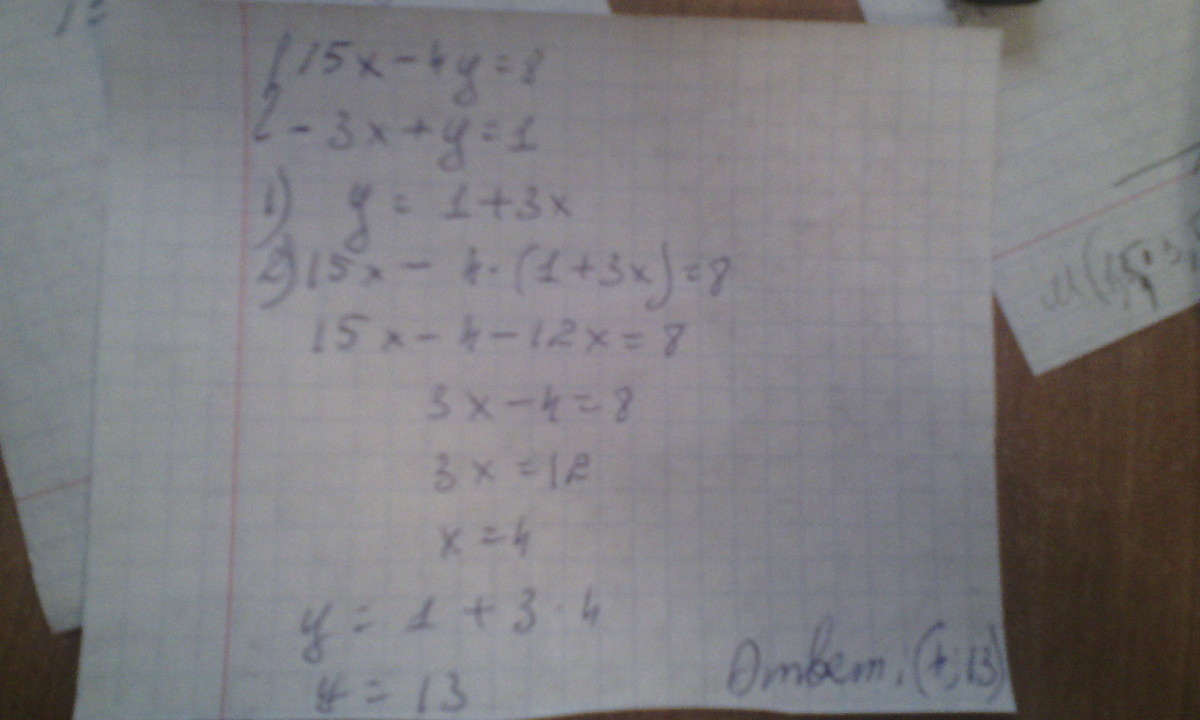 { 15x - 4y = 8
- 3x + y = 1
1) y = 1 + 3x
2) 15x - 4 · (1 + 3x) = 8
15x - 4 - 12x = 8
3x - 4 = 8
3x = 12
x = 4
y = 1 + 3 · 4
y = 13
Ответ: (4; 13)